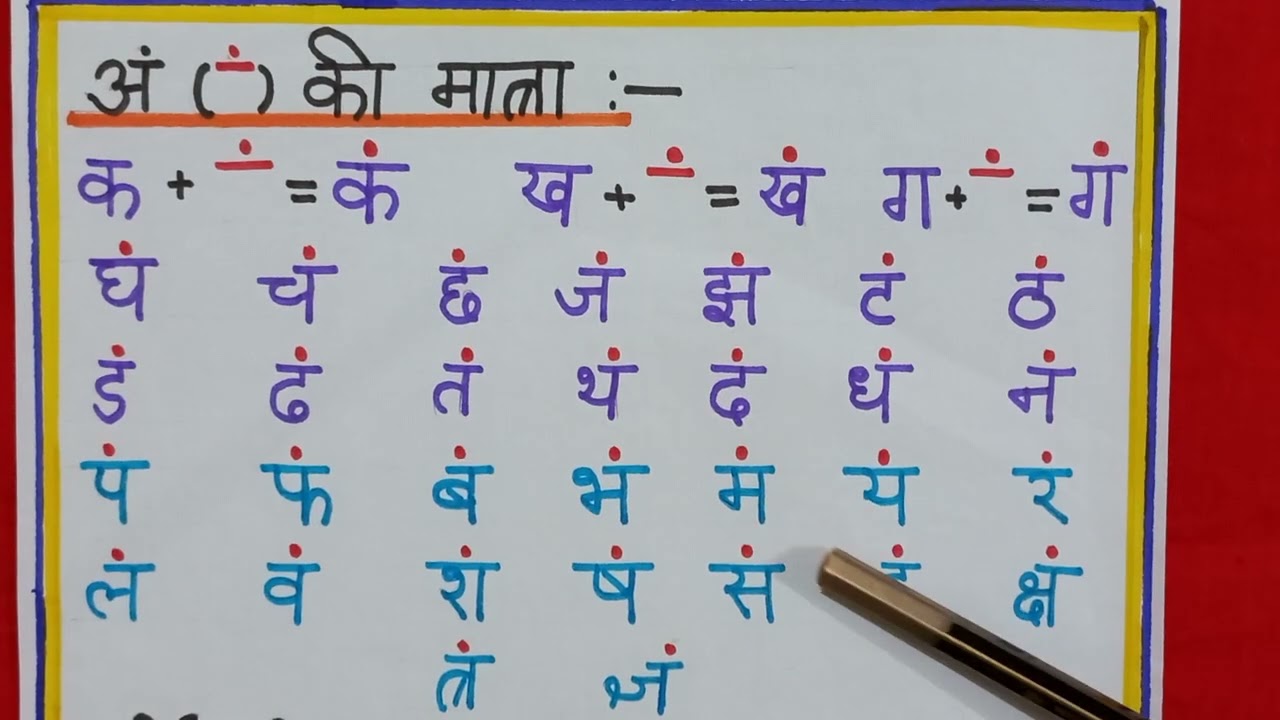 अं (ं) की मात्रा :—
क + ं = कं ख + ं = खं ग + ं = गं
घं चं छं जं झं टं ठं
डं ढं तं थं दं धं नं
पं फं बं भं मं यं रं
लं वं शं षं सं क्षं
त्रं ज्ञं